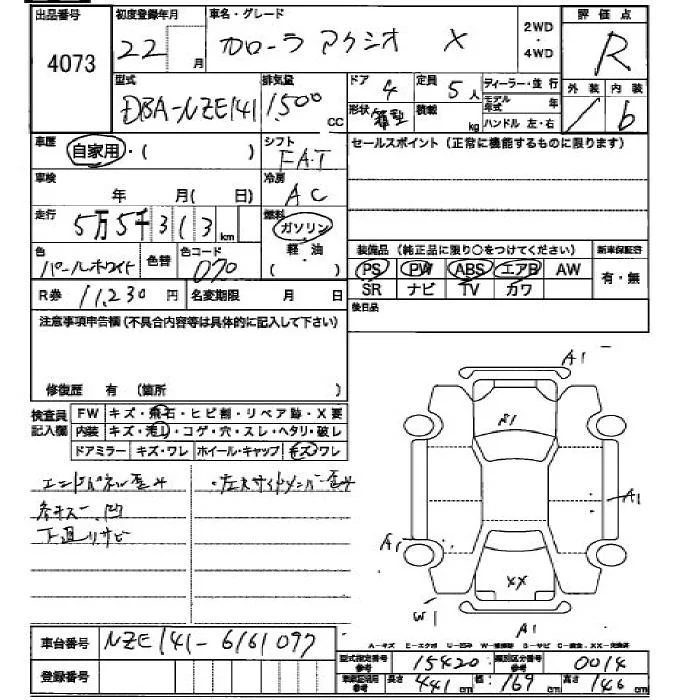 出品番号 初度登録年月 車名・グレード 2WD・4WD 評価点
4073 22 月 カローラ アクシオ X R
型式 排気量 ドア 定員 ディーラー・並行 外装 内装
DBA-NZE141 1500 CC 4 5人 モデル年式 年 / b
形状 箱型 積載 kg ハンドル 左・右
車歴 自家用・( ) シフト FAT セールスポイント(正常に機能するものに限ります)
車検 年 月( 日) 冷房 AC
走行 5万5千313 km 燃料 ガソリン・軽油 ( )
色 パールホワイト 色替 色コード 070
装備品(純正品に限り○をつけてください) 新車保証書
PS PW ABS エアB AW 有・無
SR ナビ TV カワ
R券 11,230円 名変期限 月 日 後日品
注意事項申告欄(不具合内容等は具体的に記入して下さい)
修復歴 有 (箇所 )
検査員記入欄
FW キズ・飛石・ヒビ割・リペア跡・X要
内装 キズ・汚れ・コゲ・穴・スレ・ヘタリ・破レ
ドアミラー キズ・ワレ ホイール・キャップ キズ ワレ
エンドパネル歪み ・左右サイドメンバー歪み
各キズ、凹
下廻りサビ
A1
A1
A1
A1
XX
W1
A1
車台番号 NZE141-6161097
登録番号
型式指定番号 参考 15420 類別区分番号 参考 0014
車検証明用 参考 長さ 441cm 幅 169cm 高さ 146cm